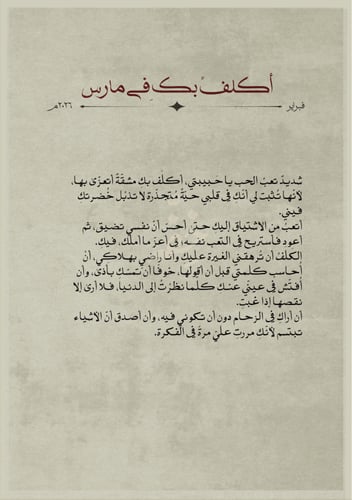 أكلفُ بكِ في مارس
فبراير
٢٠٢٦م
شديدٌ تعبُ الحب يا حبيبتي، أكلف بك مشقّةً أتعزّى بها،
لأنها تُثبت لي أنّك في قلبي حيّةٌ مُتجذّرة لا تذبُل خُضرتك
فيني.
أتعبُ من الاشتياق إليك حتى أحسّ أنّ نفسي تضيق، ثم
أعود فأستريح في التعب نفسه، في أعزّ ما أملك، فيك.
الكلفُ أن تُرهقني الغيرة عليك وأنا راضٍ بهلاكي، أنْ
أحاسب كلمتي قبل أن أقولها، خوفًا أن تمسّك بأذى، وأن
أفتّش في عيني عنك كلّما نظرتُ إلى الدنيا، فلا أرى إلا
نقصها إذا غبتِ.
أن أراكِ في الزحام دون أن تكوني فيه، وأن أصدق أنّ الأشياء
تبتسم لأنّك مررتِ عليّ مرةً في الفكرة.